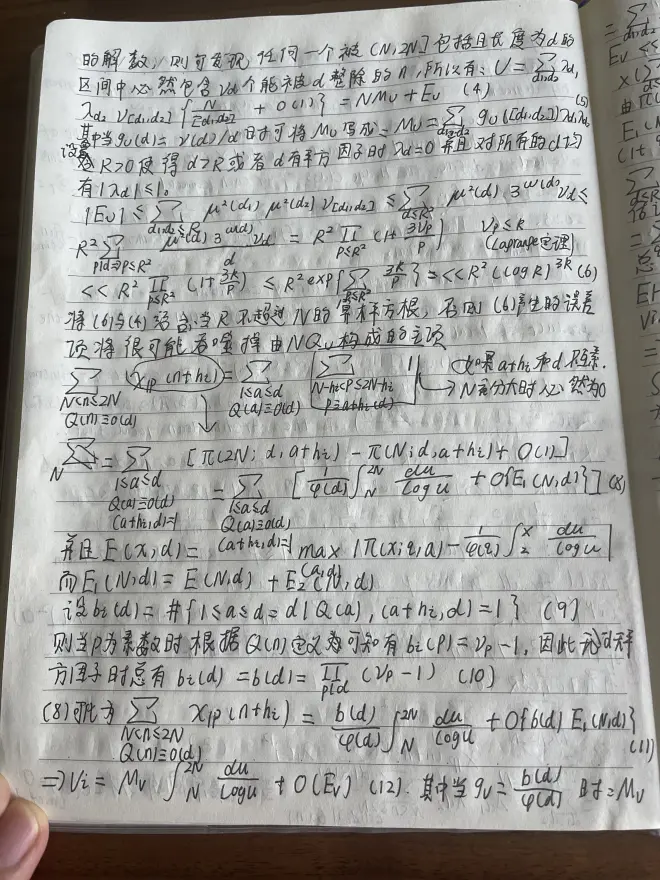 的解数,则可发现任何一个被(N,2N]包括且长度为d的
区间中必然包含νd个能被d整除的n,所以有: U = ∑_{d₁,d₂} λ_{d₁}
λ_{d₂} ν_{[d₁,d₂]} { N/[d₁,d₂] + O(1) } = NM_U + E_U (4)
其中当g_U(d) = ν(d)/d时可将M_U写成: M_U = ∑_{d₁,d₂} g_U([d₁,d₂]) λ_{d₁}λ_{d₂} (5)
设 R>0使得d>R或者d有平方因子时λd=0并且对所有的d均
有|λd|≤1。
|E_U| ≤ ∑_{d₁,d₂≤R} μ²(d₁) μ²(d₂) ν_{[d₁,d₂]} ≤ ∑_{d≤R²} μ²(d) 3^{ω(d)} ν_d ≤
R² ∑_{p|d⇒p≤R²} μ²(d) 3^{ω(d)} ν_d / d = R² ∏_{p≤R²} (1 + 3ν_p/p) ν_p ≤ k (Lagrange定理)
<< R² ∏_{p≤R²} (1 + 3k/p) ≤ R² exp{ ∑_{p≤R²} 3k/p } << R² (log R)^{3k} (6)
将(6)与(4)结合,当R不超过N的某样方根,否则(6)产生的误差
项将很可能吞噬掉由NQ_U构成的主项
∑_{N<n≤2N, Q(n)≡0(d)} χ_{IP}(n+h_i) = ∑_{1≤a≤d, Q(a)≡0(d)} ∑_{N-h_i<p≤2N-h_i, p≡a+h_i(d)} 1 如果a+h_i和d不互素.
→N充分大时必然为0
∑ = ∑_{1≤a≤d, Q(a)≡0(d), (a+h_i,d)=1} [π(2N; d, a+h_i) - π(N; d, a+h_i) + O(1)]
= ∑_{1≤a≤d, Q(a)≡0(d), (a+h_i,d)=1} [ 1/φ(d) ∫_N^{2N} du/log u + O{E₁(N,d)} ] (8)
并且E(x,d) = max_{(a,d)} |π(x;q,a) - 1/φ(q) ∫_2^x du/log u|
而E₁(N,d) = E(N,d) + E₂(N,d)
设b_i(d) = #{1≤a≤d = d|Q(a), (a+h_i,d)=1} (9)
则当p为素数时根据Q(n)定义可知有b_i(p) = ν_p - 1, 因此无平
方因子时总有b_i(d) = b(d) = ∏_{p|d} (ν_p - 1) (10)
(8)可化为 ∑_{N<n≤2N, Q(n)≡0(d)} χ_{IP}(n+h_i) = b(d)/φ(d) ∫_N^{2N} du/log u + O{b(d) E₁(N,d)} (11)
⇒ V_i = M_V ∫_N^{2N} du/log u + O(E_V) (12). 其中当g_V = b(d)/φ(d) 时: M_V